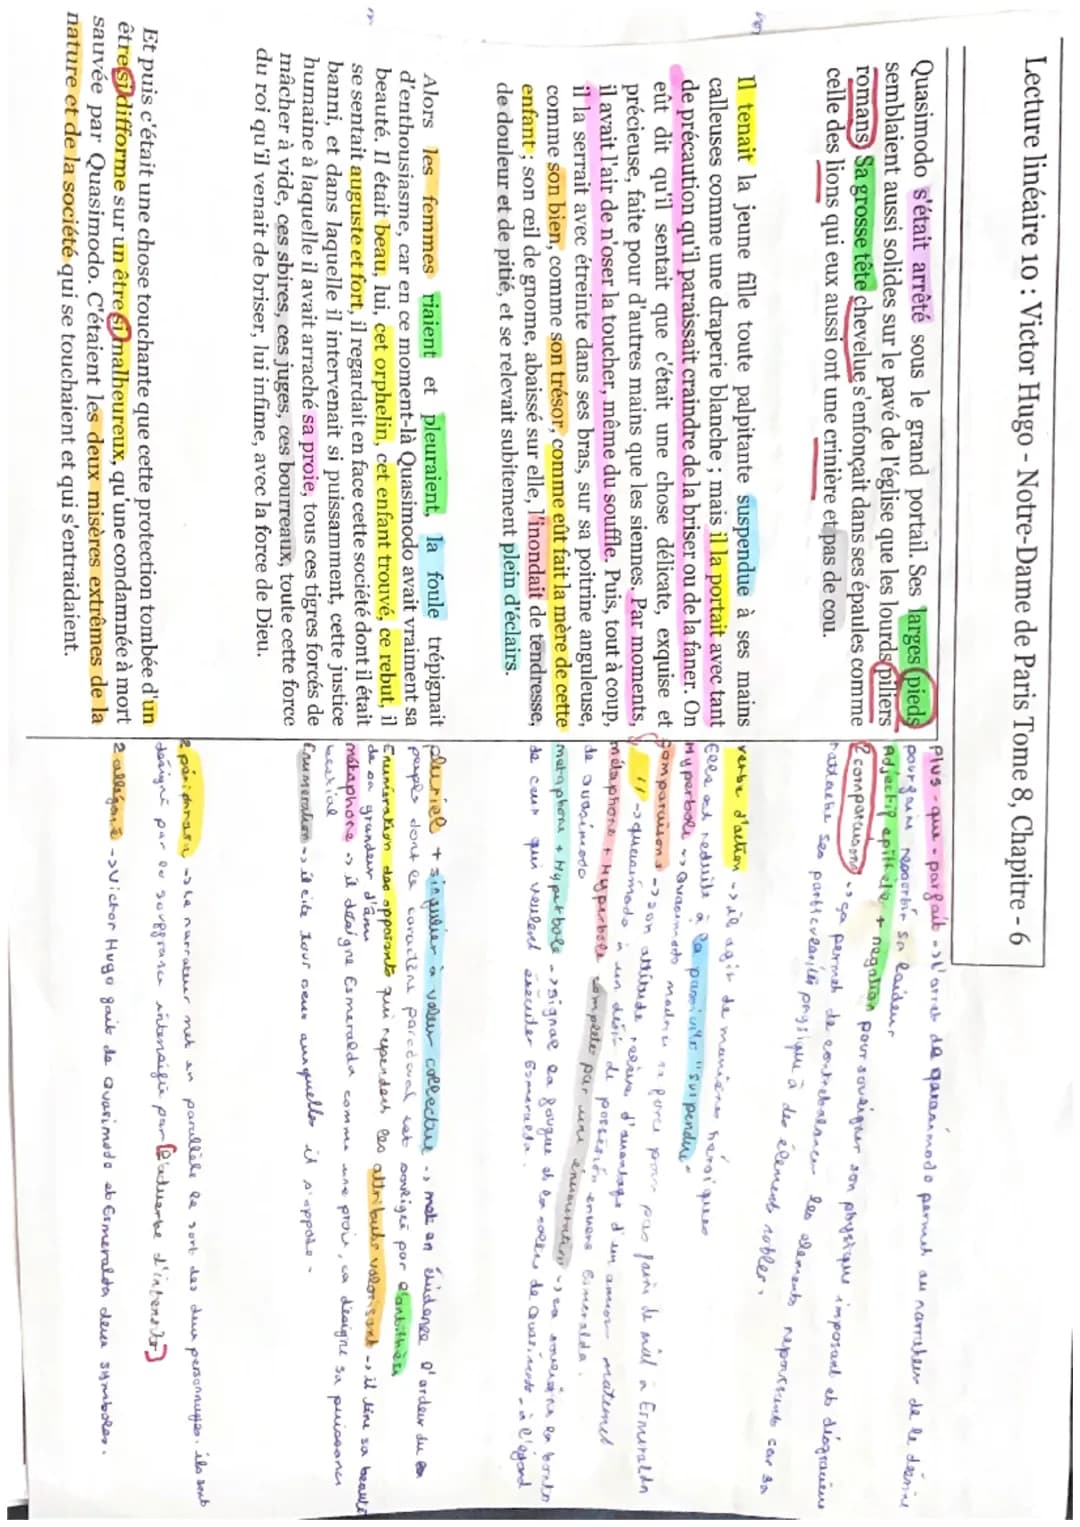 Lecture linéaire 10 : Victor Hugo - Notre-Dame de Paris Tome 8, Chapitre - 6
Quasimodo s'était arrêté sous le grand portail. Ses larges pieds
semblaient aussi solides sur le pavé de l'église que les lourds piliers
romans. Sa grosse tête chevelue s'enfonçait dans ses épaules comme
celle des lions qui eux aussi ont une crinière et pas de cou.
Il tenait la jeune fille toute palpitante suspendue à ses mains
calleuses comme une draperie blanche ; mais il la portait avec tant
de précaution qu'il paraissait craindre de la briser ou de la faner. On
eût dit qu'il sentait que c'était une chose délicate, exquise et
précieuse, faite pour d'autres mains que les siennes. Par moments,
il avait l'air de n'oser la toucher, même du souffle. Puis, tout à coup,
il la serrait avec étreinte dans ses bras, sur sa poitrine anguleuse,
comme son bien, comme son trésor, comme eût fait la mère de cette
enfant ; son œil de gnome, abaissé sur elle, l'inondait de tendresse,
de douleur et de pitié, et se relevait subitement plein d'éclairs.
Alors les femmes riaient et pleuraient, la foule trépignait
d'enthousiasme, car en ce moment-là Quasimodo avait vraiment sa
beauté. Il était beau, lui, cet orphelin, cet enfant trouvé, ce rebut, il
se sentait auguste et fort, il regardait en face cette société dont il était
banni, et dans laquelle il intervenait si puissamment, cette justice
humaine à laquelle il avait arraché sa proie, tous ces tigres forcés de
mâcher à vide, ces sbires, ces juges, ces bourreaux, toute cette force
du roi qu'il venait de briser, lui infime, avec la force de Dieu.
Et puis c'était une chose touchante que cette protection tombée d'un
être si difforme sur un être si malheureux, qu'une condamnée à mort
sauvée par Quasimodo. C'étaient les deux misères extrêmes de la
nature et de la société qui se touchaient et qui s'entraidaient.
Plus-que-parfait -> L'arret de quasimodo permet au narrateur de le décrire
pour faire ressortir sa laideur
Adjectif epithète + negation pour souligner son physique imposant et disgracieux
2 comparaisons -> ça permet de contrebalancer les elements repoussants car sa
rattache ses particularités physique à des élements nobles.
verbe d'action -> il agit de manière héroïques
Elle est réduite à la passivité "suspendue"
Hyperbole -> Quasimodo maitrise sa force pour pas faire de mal a Esmeralda
Comparaisons -> son attitude relève d'avantage d'un amour maternel
" -> quasimodo à un désir de possession envers Esmeralda.
métaphore + Hyperbole completer par une enumeration -> ça souligne la bonté
de Quasimodo
metaphore + Hyperbole -> signal la fougue et la colère de Quasimodo à l'égard
de ceux qui veulent exécuter Esmeralda.
pluriel + singulier à valeur collective -> met en évidence l'ardeur du
peuple dont le caractère paradoxal est souligné par l'antithèse
Enumération des opposants qui reprendent les attributs valorisant -> il tire sa beauté
de sa grandeur d'âme
métaphore -> il designe Esmeralda comme une proie, ça désigne sa puissance
bestial
Enumeration -> il cite tour ceux auxquelles il s'oppose.
2 périphrases -> Le narrateur met en parallèle le sort des deux personnages. ils sont
désigné par la souffrance intensifié par [l'adverbe d'intensité]
2 allégorie -> Victor Hugo fait de quasimodo et Esmeralda deux symboles.